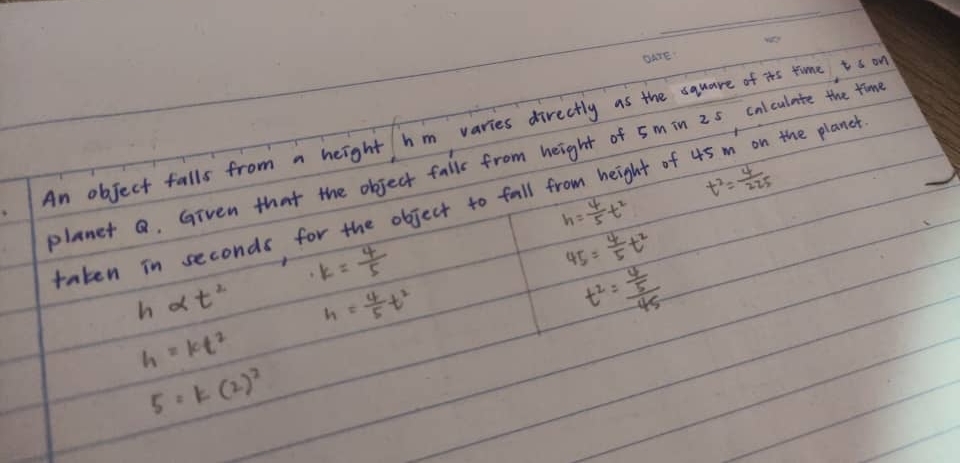 DATE:
NO:
An object falls from a height, h m, varies directly as the square of its time, t s on
planet Q. Given that the object falls from height of 5 m in 2 s, calculate the time
taken in seconds, for the object to fall from height of 45 m on the planet.
h ∝ t²
h = kt²
5 = k (2)²
k = 4/5
h = 4/5 t²
h = 4/5 t²
45 = 4/5 t²
t² = 4/5 / 45
t² = 4/225